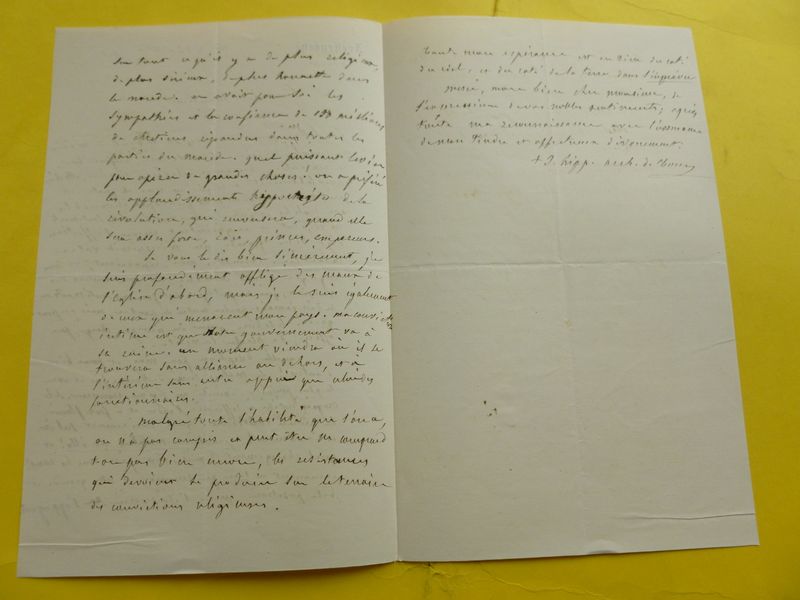 son tout ce qu'il y a de plus religieux,
de plus sérieux, de plus honnête dans
le monde. on avait pour soi les
sympathies et la confiance de 200 millions
de chrétiens répandus dans toutes les
parties du monde. quel puissant levier
pour opérer de grandes choses! on a préféré
les applaudissements hypocrites de la
révolution, qui renversera, quand elle
sera assez forte, rois, princes, empereurs.
Je vous le dis bien sincèrement, je
suis profondément affligé des maux de
l'église d'abord, mais je le suis également
de ceux qui menacent mon pays. ma conviction
intime est que notre gouvernement va à
sa ruine. un moment viendra où il se
trouvera sans alliance au dehors, et à
l'intérieur sans autre appui que celui des
fonctionnaires.
malgré toute l'habilité que l'on a,
on n'a pas compris et peut être ne comprend
t-on pas bien encore, les résistances
qui devaient se produire sur le terrain
des convictions religieuses.
toute mon espérance est en Dieu du côté
du ciel, et du côté de la terre dans l'imprévu
merci, mon bien cher monsieur, de
l'expression de vos nobles sentiments; agréez
toute ma reconnaissance avec l'assurance
de mon tendre et affectueux dévouement.
+ J. hipp. arch. de Tours